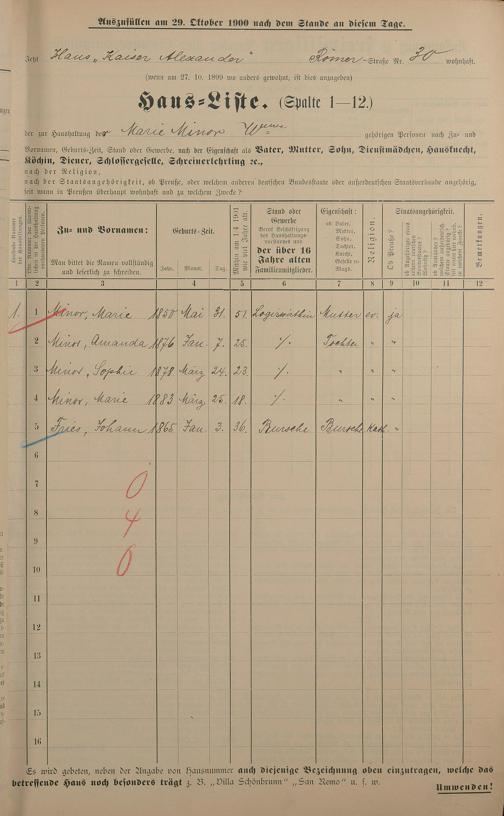 Auszufüllen am 29. Oktober 1900 nach dem Stande an diesem Tage.
Jetzt Haus „Kaiser Alexander“ Römer-Straße Nr. 30 wohnhaft.
(wenn am 27. 10. 1899 wo anders gewohnt, ist dies anzugeben)
Haus-Liste. (Spalte 1—12.)
der zur Haushaltung der Marie Minor Wwe gehörigen Personen nach Zu- und
Vornamen, Geburts-Zeit, Stand oder Gewerbe, nach der Eigenschaft als Vater, Mutter, Sohn, Dienstmädchen, Hausknecht,
Köchin, Diener, Schlossergeselle, Schreinerlehrling ec.,
nach der Religion,
nach der Staatsangehörigkeit, ob Preuße, oder welchem anderen deutschen Bundesstaate oder außerdeutschen Staatsverbande angehörig,
seit wann in Preußen überhaupt wohnhaft und zu welchem Zwecke?
Zu- und Vornamen:
Man bittet die Namen vollständig und leserlich zu schreiben.
Geburts-Zeit.
Jahr. Monat. Tag.
Stand oder Gewerbe
der über 16 Jahre alten Familienmitglieder.
Eigenschaft:
ob Vater, Mutter, Sohn, Tochter,
Religion.
Staatsangehörigkeit.
Ob Preuße?
Bemerkungen.
1 2 3 4 5 6 7 8 9 10 11 12
1. 1 Minor, Marie 1850 Mai 31. 51. Logiswirthin Mutter ev. ja
2 Minor, Amanda 1876 Jan. 7. 25. ./. Tochter „ „
3 Minor, Sophie 1878 März 24. 23. ./. „ „ „
4 Minor, Marie 1883 März 25. 18. ./. „ „ „
5 Fries, Johann 1865 Jan. 3. 36. Bursche Bursche Kath. „
6
7 0
8 4
9
10 0
11
12
13
14
15
16
Es wird gebeten, neben der Angabe von Hausnummer auch diejenige Bezeichnung oben einzutragen, welche das
betreffende Haus noch besonders trägt z. B. „Villa Schönbrunn“ „San Remo“ u. s. w.
Umwenden!